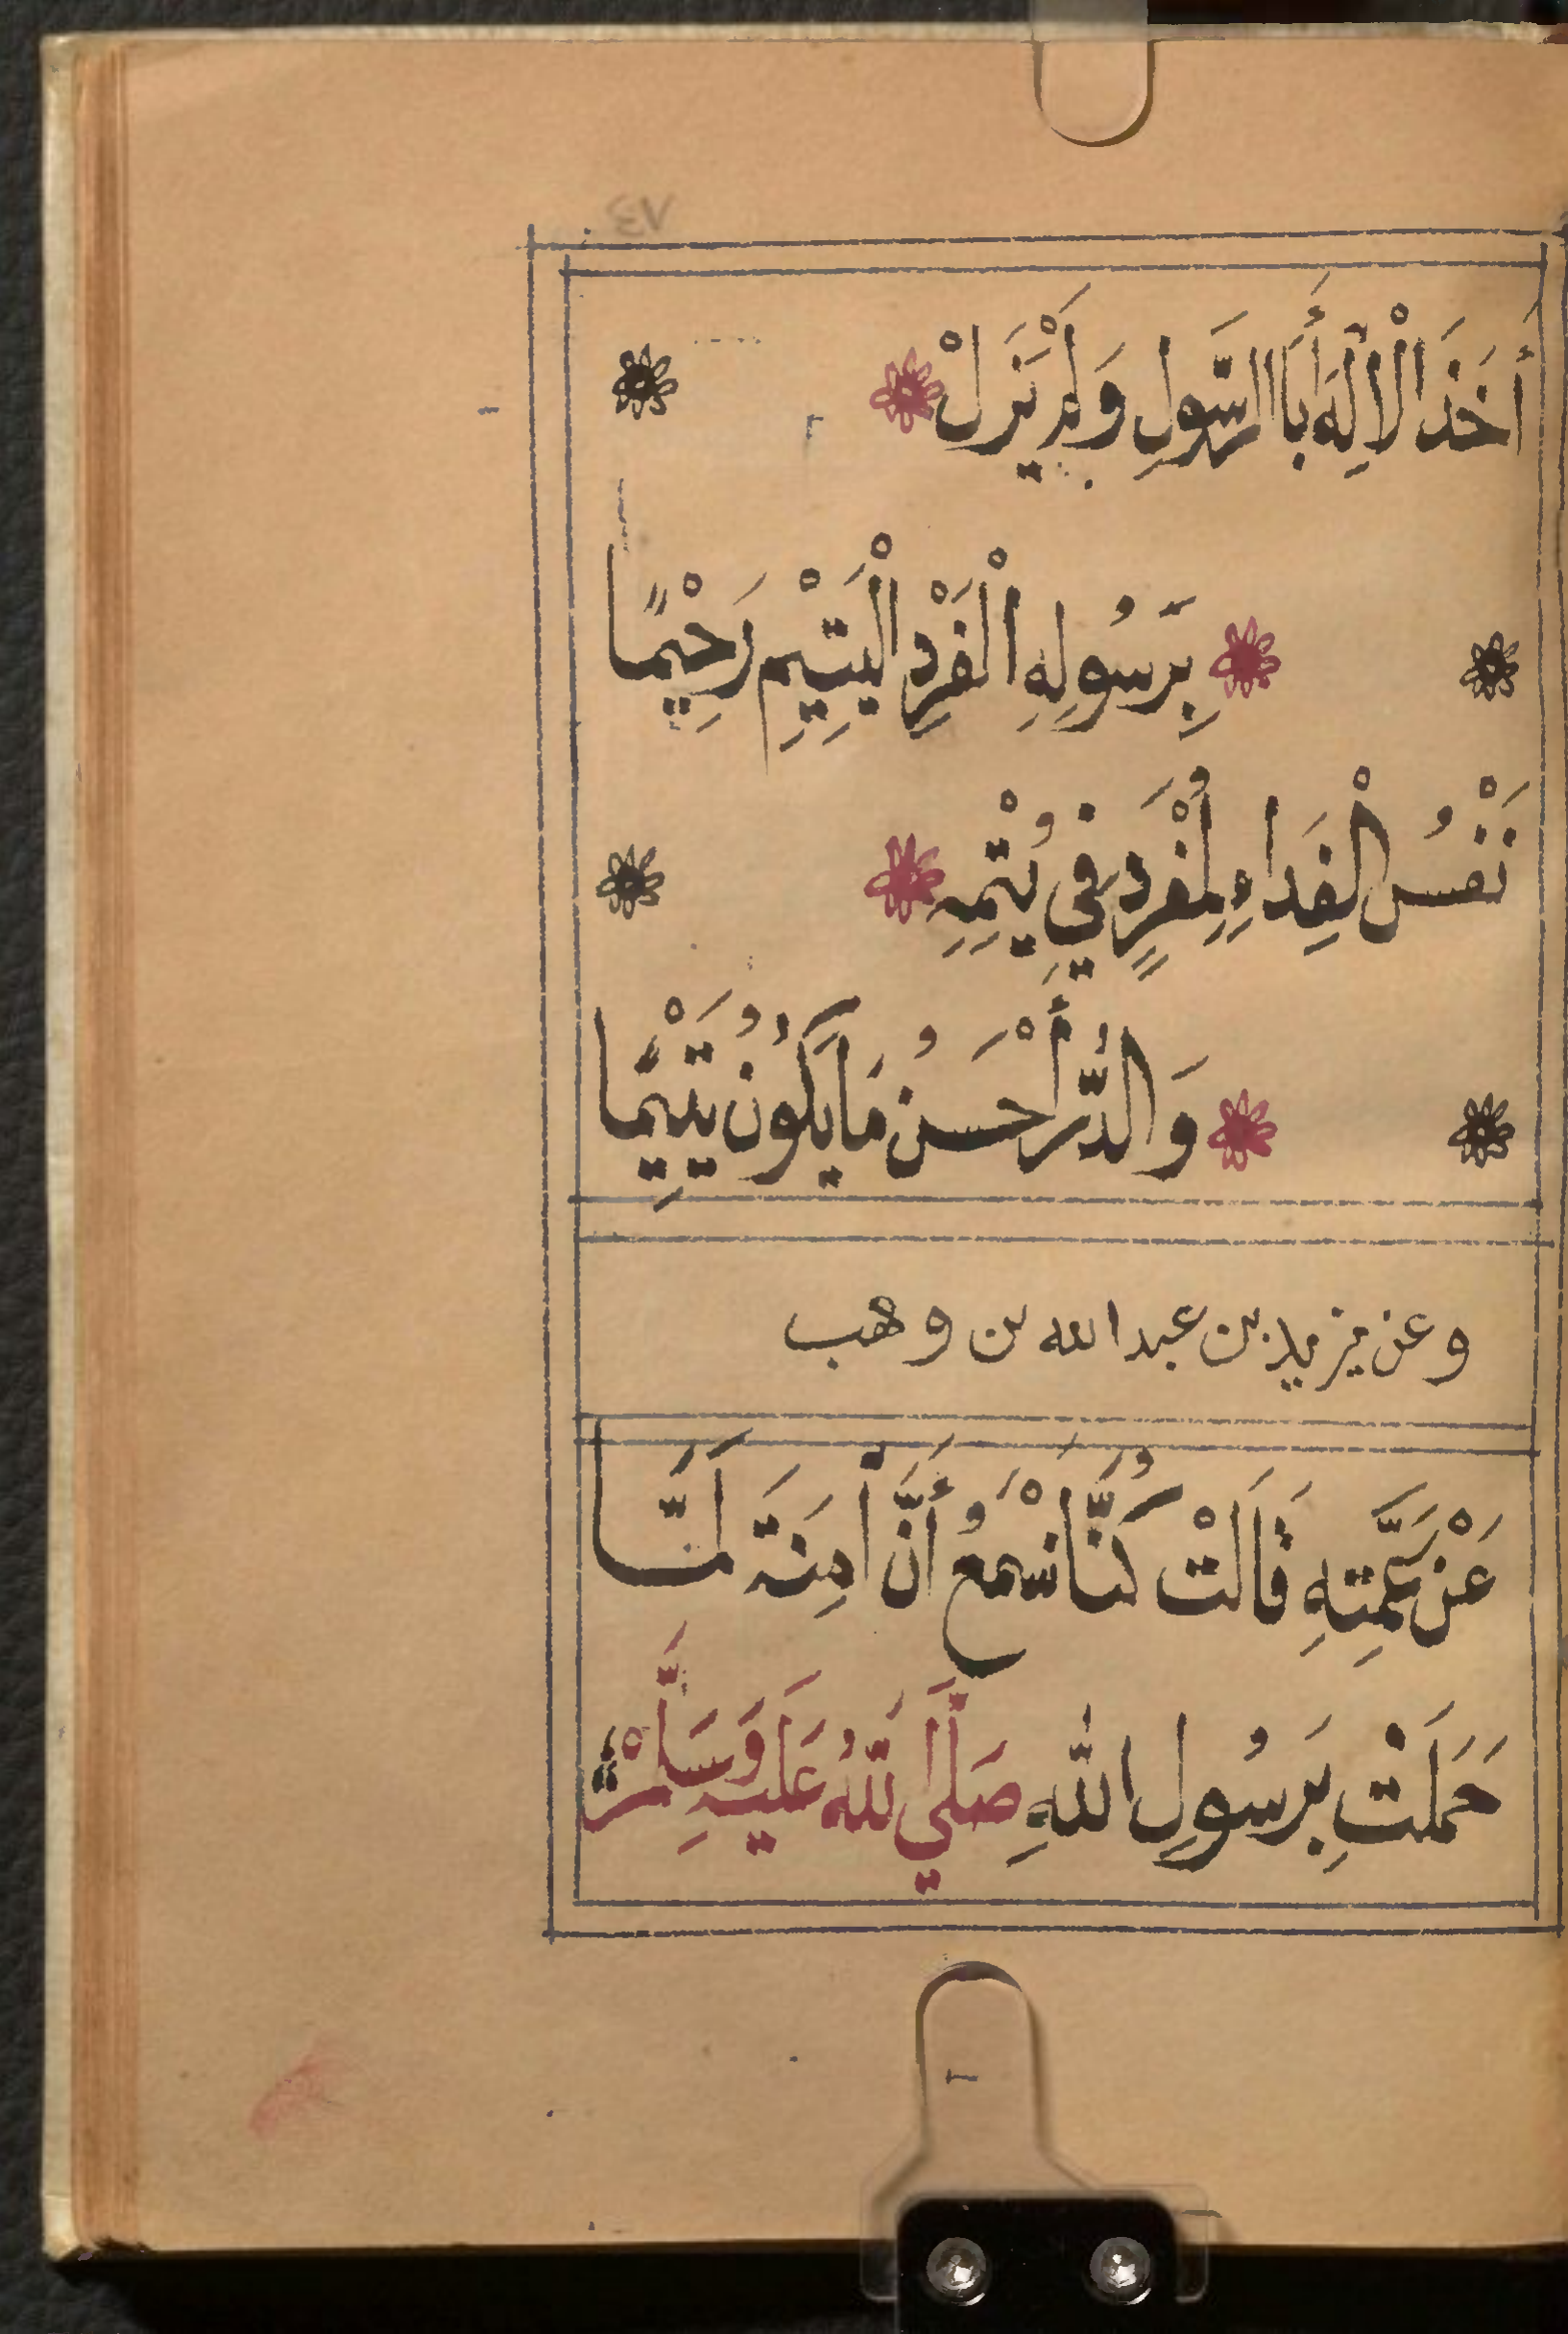 أَخَذَ الْاِلٰهُ أَبَا الرَّسُولِ وَلَمْ يَزَلْ
بِرَسُولِهِ الْفَرْدِ الْيَتِيْمِ رَحِيْمًا
نَفْسُ الْفِدَاءِ لِمُفْرَدٍ فِي يُتْمِهِ
وَالدُّرُّ أَحْسَنُ مَا يَكُوْنُ يَتِيْمًا
وعن يزيد بن عبد الله بن وهب
عَنْ عَمَّتِهِ قَالَتْ كُنَّا نَسْمَعُ أَنَّ اٰمِنَةَ لَمَّا
حَمَلَتْ بِرَسُولِ اللّٰهِ صَلَّي اللّٰهُ عَلَيْهِ وَسَلَّمْ